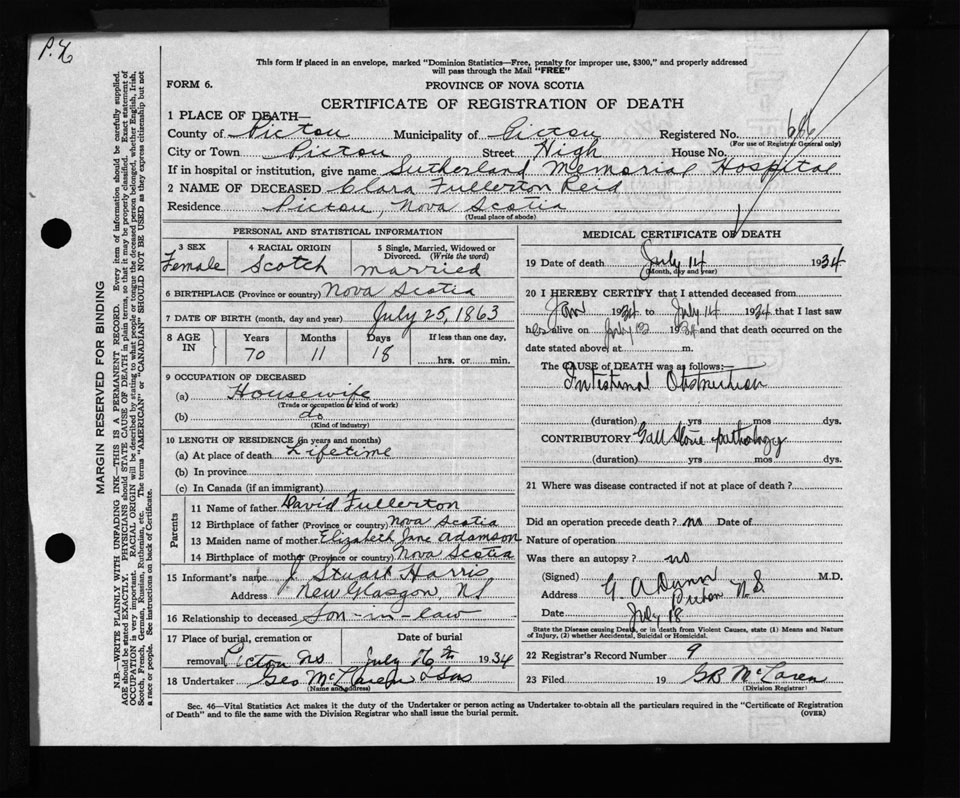 P.X
This form if placed in an envelope, marked "Dominion Statistics—Free, penalty for improper use, $300," and properly addressed
will pass through the Mail "FREE"
FORM 6.
PROVINCE OF NOVA SCOTIA
CERTIFICATE OF REGISTRATION OF DEATH
1 PLACE OF DEATH—
County of Pictou Municipality of Pictou Registered No. 686
(For use of Registrar General only)
City or Town Pictou Street High House No.
If in hospital or institution, give name Sutherland Memorial Hospital
2 NAME OF DECEASED Clara Fullerton Reid
Residence Pictou, Nova Scotia
(Usual place of abode)
PERSONAL AND STATISTICAL INFORMATION
3 SEX Female
4 RACIAL ORIGIN Scotch
5 Single, Married, Widowed or Divorced. (Write the word) married
6 BIRTHPLACE (Province or country) Nova Scotia
7 DATE OF BIRTH (month, day and year) July 25, 1863
8 AGE IN Years 70 Months 11 Days 18 If less than one day, hrs. or min.
9 OCCUPATION OF DECEASED
(a) Housewife
(Trade or occupation or kind of work)
(b) do
(Kind of industry)
10 LENGTH OF RESIDENCE (in years and months)
(a) At place of death Lifetime
(b) In province
(c) In Canada (if an immigrant)
Parents
11 Name of father David Fullerton
12 Birthplace of father (Province or country) Nova Scotia
13 Maiden name of mother Elizabeth Jane Adamson
14 Birthplace of mother (Province or country) Nova Scotia
15 Informant's name J. Stuart Harris
Address New Glasgow, NS
16 Relationship to deceased Son-in-law
17 Place of burial, cremation or removal Pictou NS
Date of burial July 16th 1934
18 Undertaker Geo McLaren & Sons
(Name and address)
MEDICAL CERTIFICATE OF DEATH
19 Date of death July 14 1934
(Month, day and year)
20 I HEREBY CERTIFY that I attended deceased from
Jan 1934 to July 14 1934 that I last saw
her alive on July 13 1934 and that death occurred on the
date stated above, at m.
The CAUSE OF DEATH was as follows:—
Intestinal Obstruction
(duration) yrs mos dys.
CONTRIBUTORY Gall stone pathology
(duration) yrs mos dys.
21 Where was disease contracted if not at place of death?
Did an operation precede death? no Date of
Nature of operation
Was there an autopsy? no
(Signed) G. A Dunn M.D.
Address Pictou N.S.
Date July 18
State the Disease causing Death, or in death from Violent Causes, state (1) Means and Nature
of Injury, (2) whether Accidental, Suicidal or Homicidal.
22 Registrar's Record Number 9
23 Filed 19 GB McLaren
(Division Registrar)
Sec. 46—Vital Statistics Act makes it the duty of the Undertaker or person acting as Undertaker to obtain all the particulars required in the "Certificate of Registration
of Death" and to file the same with the Division Registrar who shall issue the burial permit. (OVER)
MARGIN RESERVED FOR BINDING
N.B.—WRITE PLAINLY WITH UNFADING INK—THIS IS A PERMANENT RECORD. Every item of information should be carefully supplied.
AGE should be stated EXACTLY. PHYSICIANS should STATE CAUSE OF DEATH in plain terms, so that it may be properly classified. Exact statement of
OCCUPATION is very important. RACIAL ORIGIN will be described by stating to what people or tongue the deceased person belonged, whether English, Irish,
Scotch, French, German, Russian, Ruthenian, etc. The terms "AMERICAN" or "CANADIAN" SHOULD NOT BE USED as they express citizenship but not
a race or people. See instructions on back of Certificate.